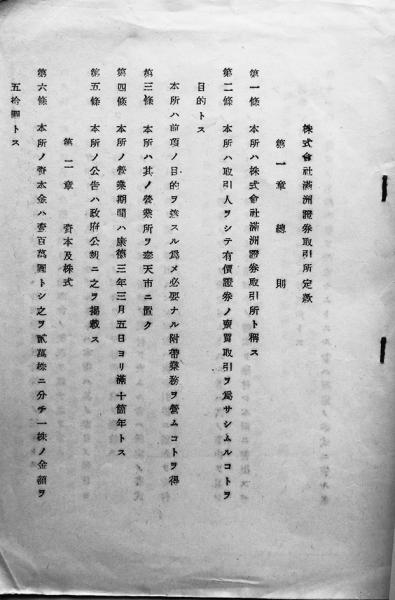 株式會社滿洲證券取引所定款
第一章 總則
第一條 本所ハ株式會社滿洲證券取引所ト稱ス
第二條 本所ハ取引人ヲシテ有價證券ノ賣買取引ヲ爲サシムルコトヲ
目的トス
本所ハ前項ノ目的ヲ達スル爲メ必要ナル附帶業務ヲ營ムコトヲ得
第三條 本所ハ其ノ營業所ヲ奉天市ニ置ク
第四條 本所ノ營業期間ハ康德三年三月五日ヨリ滿十箇年トス
第五條 本所ノ公告ハ政府公報ニ之ヲ揭載ス
第二章 資本及株式
第六條 本所ノ資本金ハ壹百萬圓トシ之ヲ貳萬株ニ分チ一株ノ金額ヲ
五拾圓トス